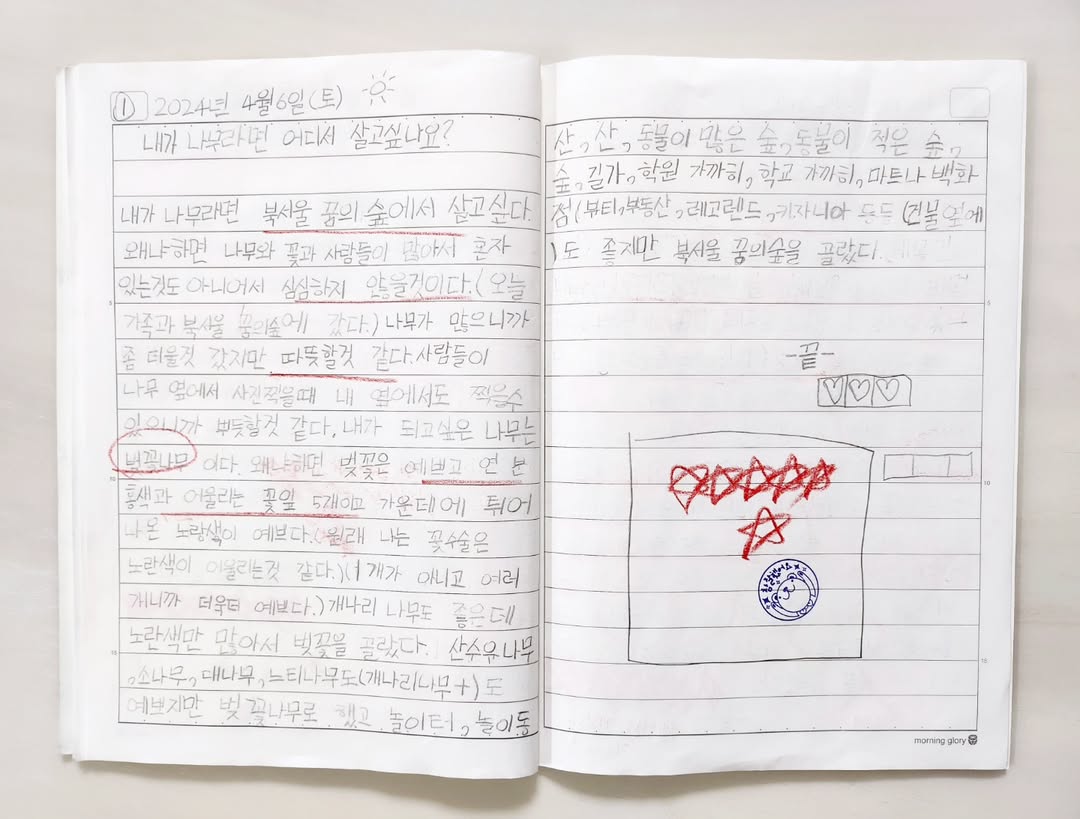 ① 2024년 4월 6일 (토)
내가 나무라면 어디서 살고싶나요?
내가 나무라면 북서울 꿈의 숲에서 살고싶다.
왜냐하면 나무와 꽃과 사람들이 많아서 혼자
있는것도 아니어서 심심하지 않을것이다.(오늘
가족과 북서울 꿈의숲에 갔다.) 나무가 많으니까
좀 더울것 같지만 따뜻할것 같다. 사람들이
나무 옆에서 사진찍을때 내 옆에서도 찍을수
있으니까 뿌듯할것 같다. 내가 되고싶은 나무는
벚꽃나무 이다. 왜냐하면 벚꽃은 예쁘고 연 분
홍색과 어울리는 꽃잎 5개이고 가운데에 튀어
나온 노랑색이 예쁘다.(원래 나는 꽃수술은
노란색이 어울리는것 같다.)(1개가 아니고 여러
개니까 더욱더 예쁘다.) 개나리 나무도 좋은데
노란색만 많아서 벚꽃을 골랐다. 산수유나무
,소나무, 대나무, 느티나무도(개나리나무+)도
예쁘지만 벚꽃나무로 했고 놀이터, 놀이동
산, 산, 동물이 많은 숲, 동물이 적은 숲,
숲, 길가, 학원 가까히, 학교 가까히, 마트나 백화
점(뷰티, 부동산, 레고렌드, 키자니아 등등 (건물 옆에
)도 좋지만 북서울 꿈의숲을 골랐다.
-끝-
morning glory